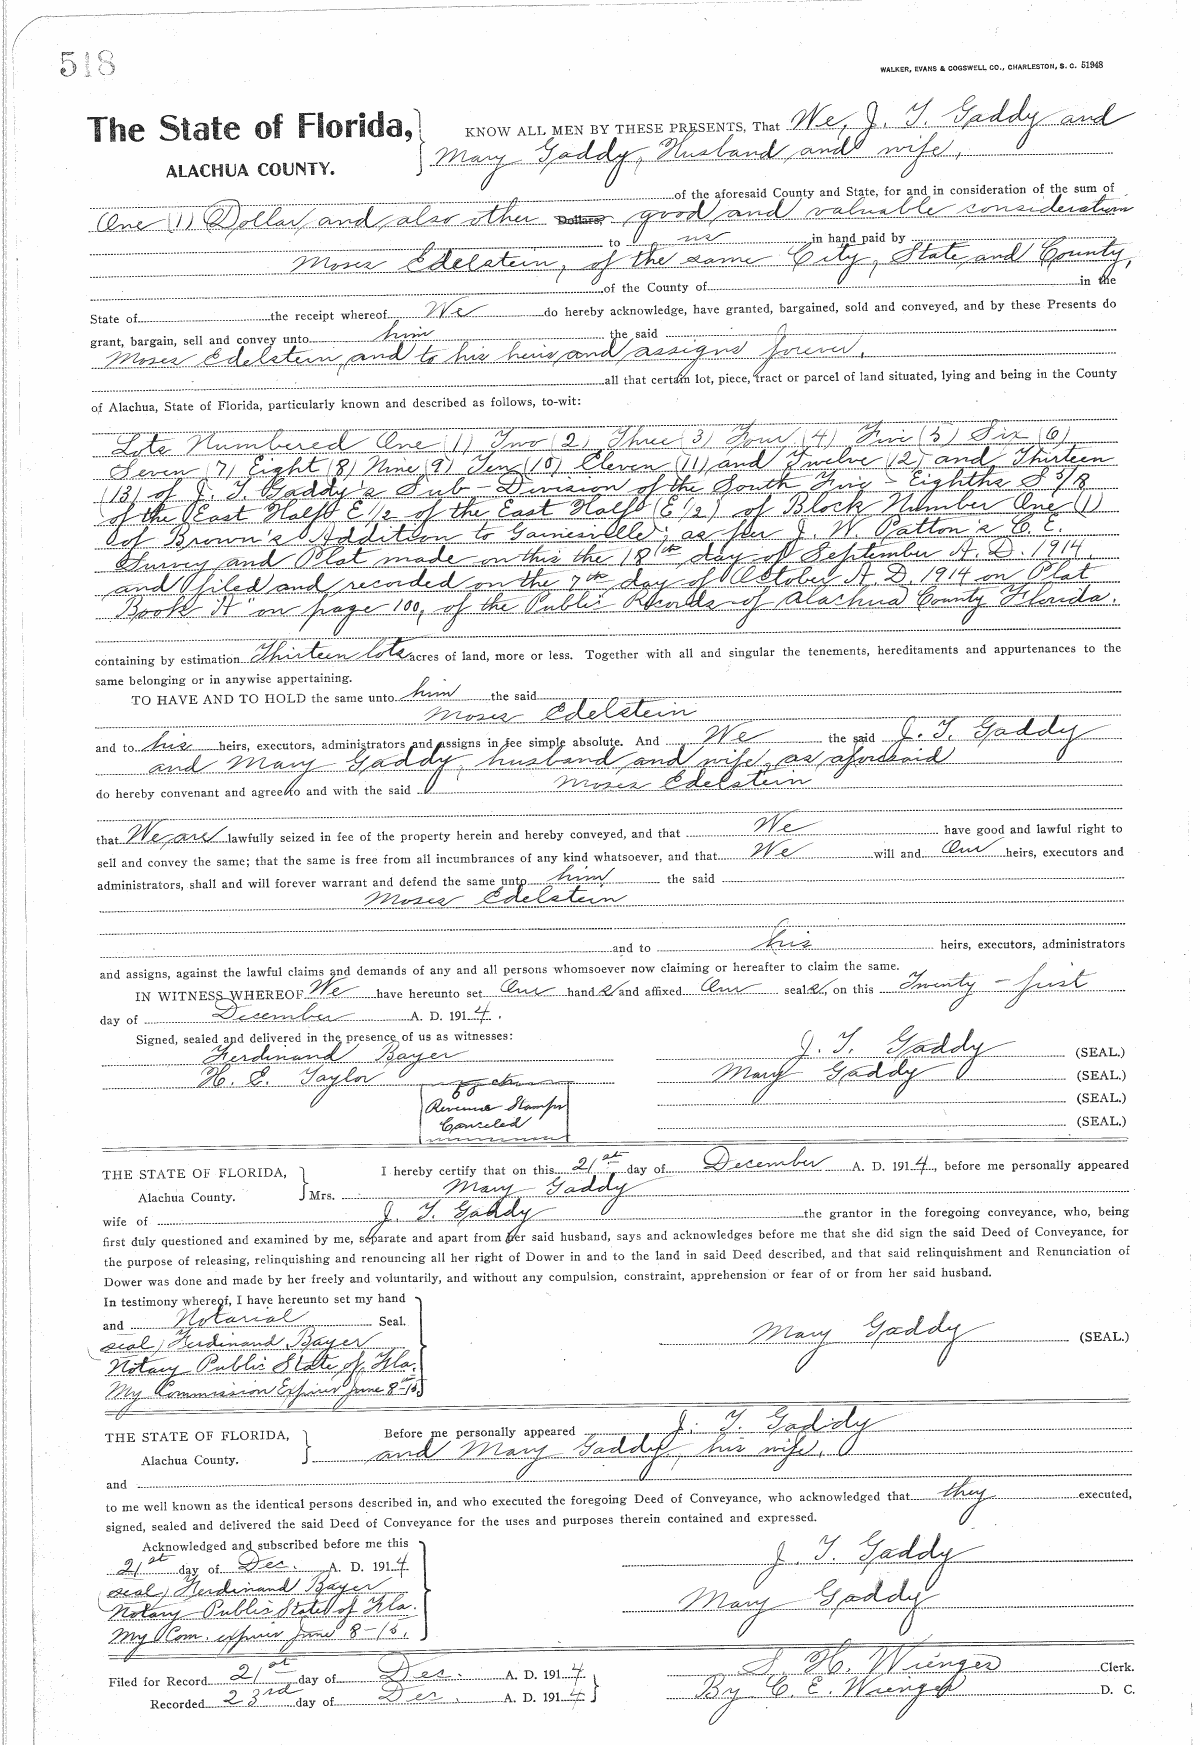 518
WALKER, EVANS & COGSWELL CO., CHARLESTON, S. C. 51948
The State of Florida,
ALACHUA COUNTY.
KNOW ALL MEN BY THESE PRESENTS, That We, J. T. Gaddy and
Mary Gaddy, Husband and wife,
of the aforesaid County and State, for and in consideration of the sum of
One (1) Dollar, and also other Dollars, good and valuable consideration
to us in hand paid by
Moses Edelstein, of the same City, State and County,
of the County of in the
State of the receipt whereof We do hereby acknowledge, have granted, bargained, sold and conveyed, and by these Presents do
grant, bargain, sell and convey unto him the said
Moses Edelstein, and to his heirs, and assigns forever,
all that certain lot, piece, tract or parcel of land situated, lying and being in the County
of Alachua, State of Florida, particularly known and described as follows, to-wit:
Lots Numbered One (1) Two (2) Three (3) Four (4) Five (5) Six (6)
Seven (7) Eight (8) Nine (9) Ten (10) Eleven (11) and Twelve (12) and Thirteen
(13) of J. T. Gaddy's Sub-Division of the South Five-Eighths S 5/8
of the East Half E 1/2 of the East Half (E 1/2) of Block Number One (1)
of Brown's Addition to Gainesville; as per J. W. Patton's C. E.
Survey and Plat made on this the 18th day of September A. D. 1914.
and filed and recorded on the 7th day of October A. D. 1914 on Plat
Book "A" on page 100, of the Public Records of Alachua County Florida.
containing by estimation Thirteen lots acres of land, more or less. Together with all and singular the tenements, hereditaments and appurtenances to the
same belonging or in anywise appertaining.
TO HAVE AND TO HOLD the same unto him the said
Moses Edelstein
and to his heirs, executors, administrators and assigns in fee simple absolute. And We the said J. T. Gaddy
and Mary Gaddy, husband and wife, as aforesaid
do hereby convenant and agree to and with the said Moses Edelstein
that We are lawfully seized in fee of the property herein and hereby conveyed, and that We have good and lawful right to
sell and convey the same; that the same is free from all incumbrances of any kind whatsoever, and that We will and Our heirs, executors and
administrators, shall and will forever warrant and defend the same unto him the said
Moses Edelstein
and to his heirs, executors, administrators
and assigns, against the lawful claims and demands of any and all persons whomsoever now claiming or hereafter to claim the same.
IN WITNESS WHEREOF We have hereunto set Our hand s and affixed Our seal s, on this Twenty-first
day of December A. D. 1914.
Signed, sealed and delivered in the presence of us as witnesses:
Ferdinand Bayer
J. T. Gaddy (SEAL.)
H. E. Taylor
Mary Gaddy (SEAL.)
(SEAL.)
(SEAL.)
Revenue Stamps
Canceled
THE STATE OF FLORIDA,
Alachua County.
I hereby certify that on this 21st day of December A. D. 1914, before me personally appeared
Mrs. Mary Gaddy
wife of J. T. Gaddy the grantor in the foregoing conveyance, who, being
first duly questioned and examined by me, separate and apart from her said husband, says and acknowledges before me that she did sign the said Deed of Conveyance, for
the purpose of releasing, relinquishing and renouncing all her right of Dower in and to the land in said Deed described, and that said relinquishment and Renunciation of
Dower was done and made by her freely and voluntarily, and without any compulsion, constraint, apprehension or fear of or from her said husband.
In testimony whereof, I have hereunto set my hand
and Notarial Seal.
(seal) Ferdinand Bayer
Mary Gaddy (SEAL.)
Notary Public State of Fla.
My Commission Expires June 8th-15
THE STATE OF FLORIDA,
Alachua County.
Before me personally appeared J. T. Gaddy
and Mary Gaddy, his wife,
and
to me well known as the identical persons described in, and who executed the foregoing Deed of Conveyance, who acknowledged that they executed,
signed, sealed and delivered the said Deed of Conveyance for the uses and purposes therein contained and expressed.
Acknowledged and subscribed before me this
21st day of Dec. A. D. 1914
J. T. Gaddy
(seal) Ferdinand Bayer
Mary Gaddy
Notary Public State of Fla.
My Com. expires June 8-15.
Filed for Record 21st day of Dec. A. D. 1914
S. H. Wienges Clerk.
Recorded 23rd day of Dec. A. D. 1914
By C. E. Wienges D. C.